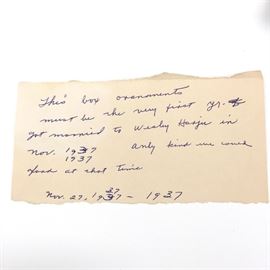 This box ornaments
must be the very first yr. I
got married to Wesley Haaja in
Nov. 1937 Only kind we could
1937
find at that time
Nov. 27, 1937 - 1937